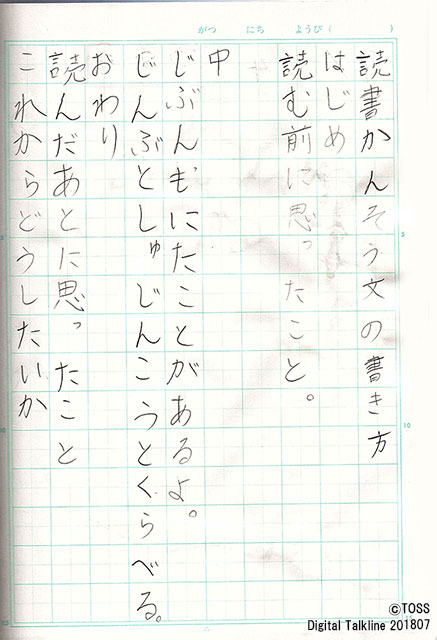 がつ　にち　ようび（　　　）
読書かんそう文の書き方
はじめ
読む前に思ったこと。
中
じぶんもにたことがあるよ。
じんぶとしゅじんこうとくらべる。
おわり
読んだあとに思ったこと
これからどうしたいか
5
10
5
10
15
©TOSS
Digital Talkline 201807